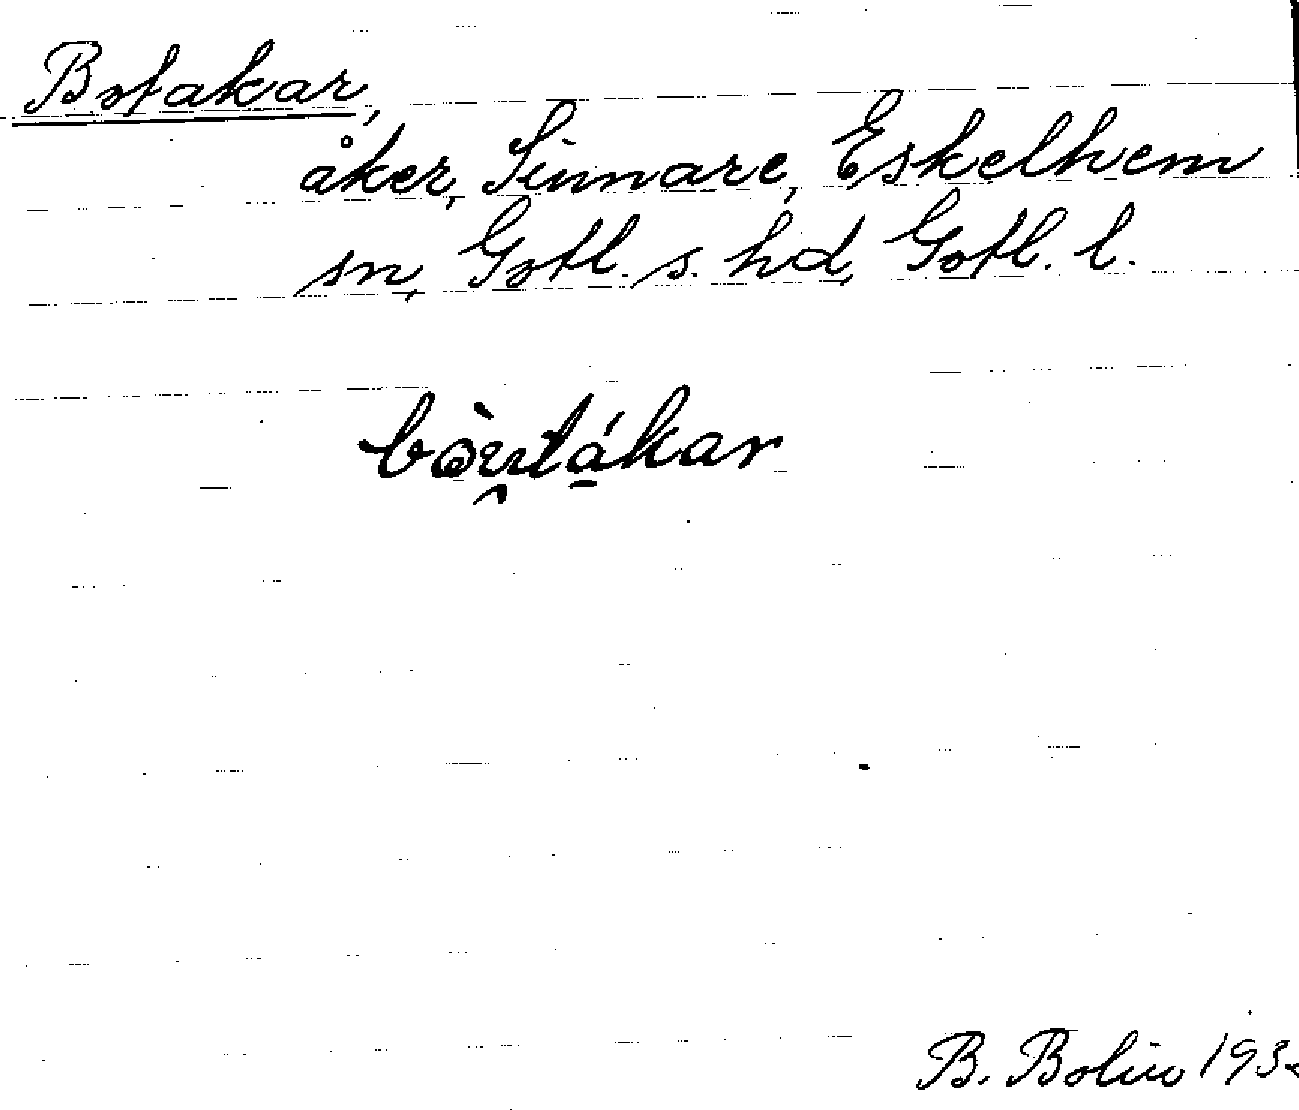 Botakar,
åker, Sinnare, Eskelhem
sn, Gotl. s. hd, Gotl. l.
B. Bolin 193